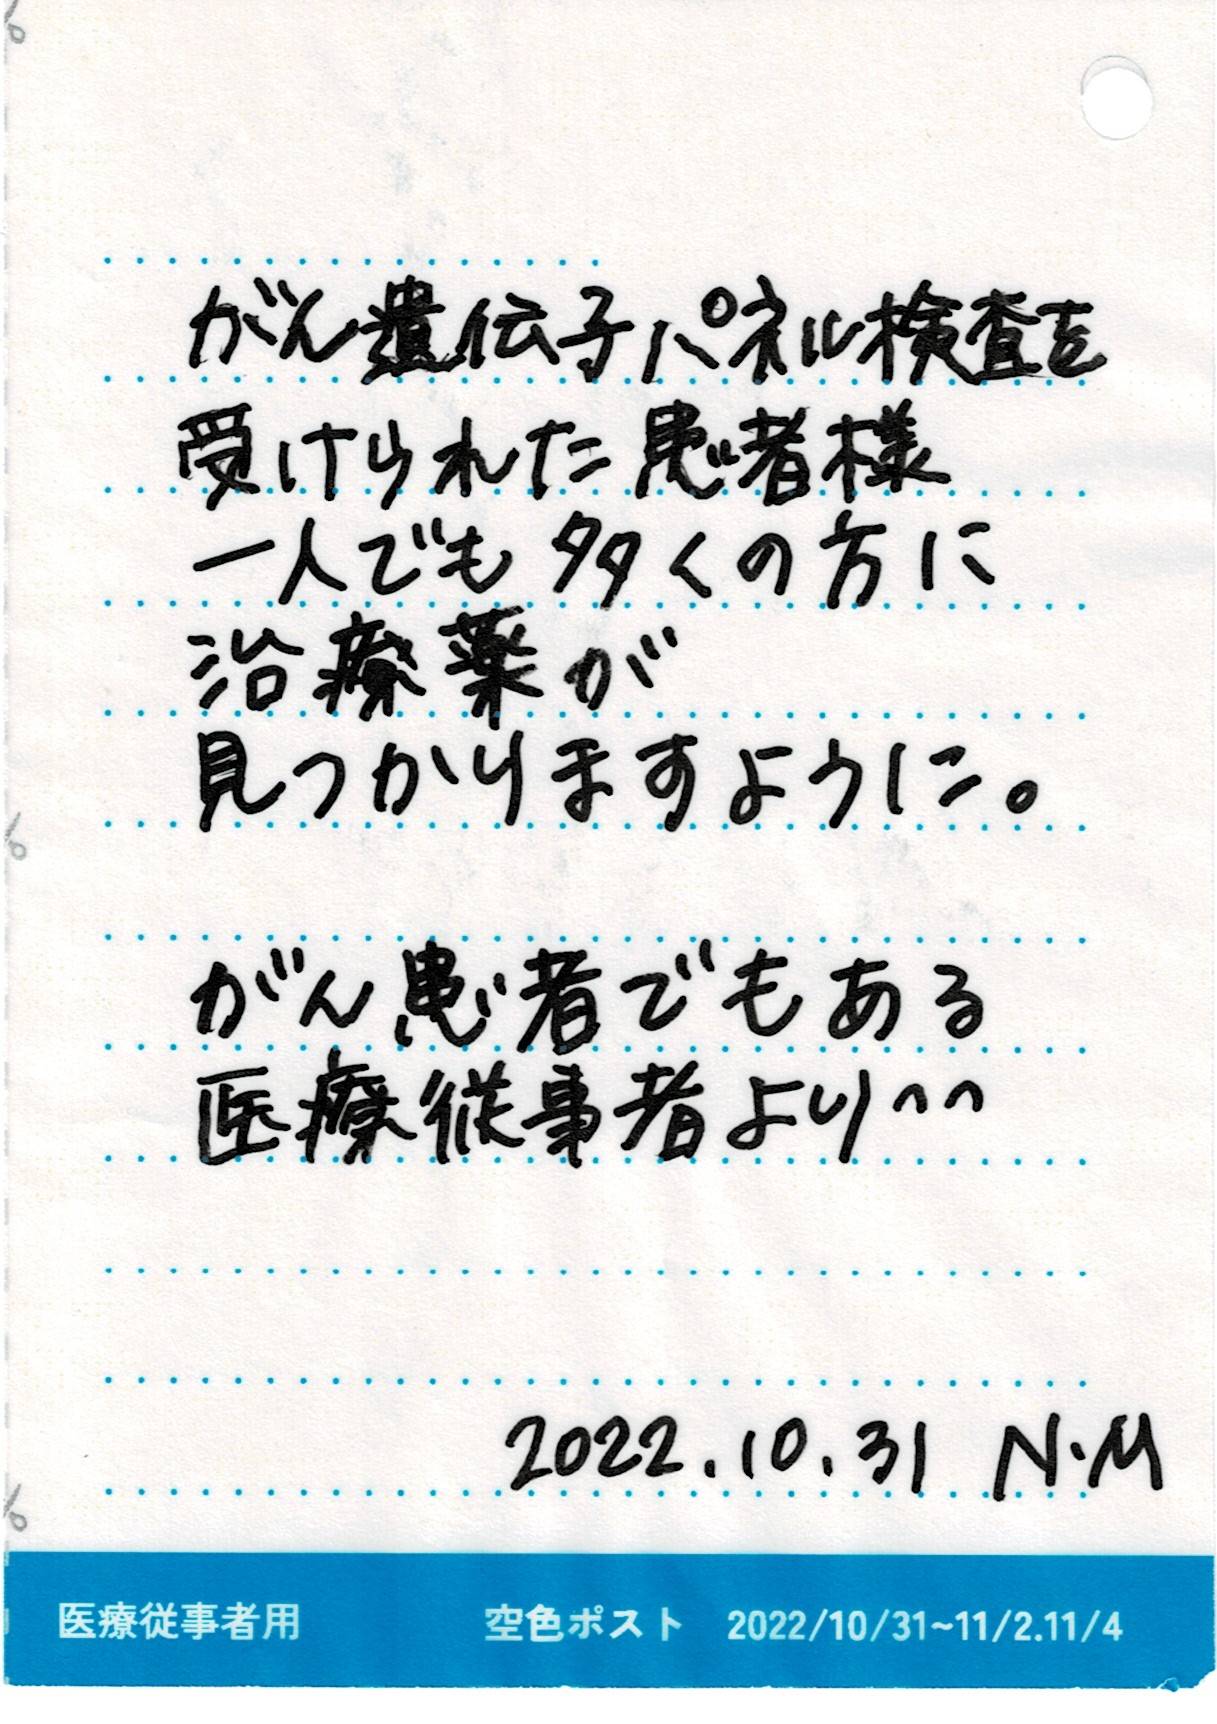 がん遺伝子パネル検査を
受けられた患者様
一人でも多くの方に
治療薬が
見つかりますように。
がん患者でもある
医療従事者より^^
2022.10.31 N.M
医療従事者用 空色ポスト 2022/10/31~11/2.11/4